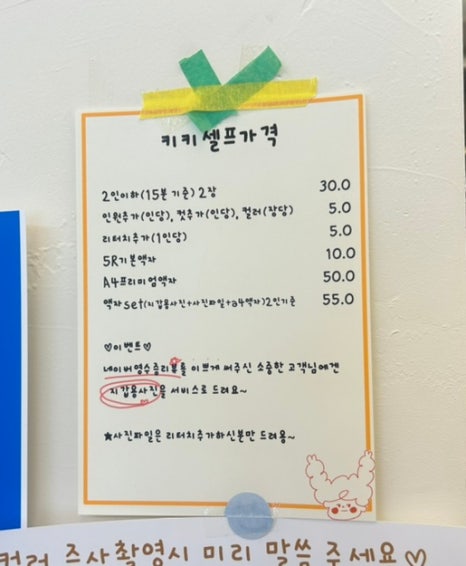 키키셀프가격
2인이하(15분 기준) 2장 30.0
인원추가(인당), 컷추가(인당), 컬러(장당) 5.0
리터치추가(1인당) 5.0
5R기본액자 10.0
A4프리미엄액자 50.0
액자set(지갑용사진+사진파일+a4액자)2인기준 55.0
♡이벤트♡
네이버영수증리뷰를 이쁘게 써주신 소중한 고객님에겐
지갑용사진을 서비스로 드려요~
★사진파일은 리터치추가하신분만 드려용~
컬러 즈사촬영시 미리 말씀 주세요♡